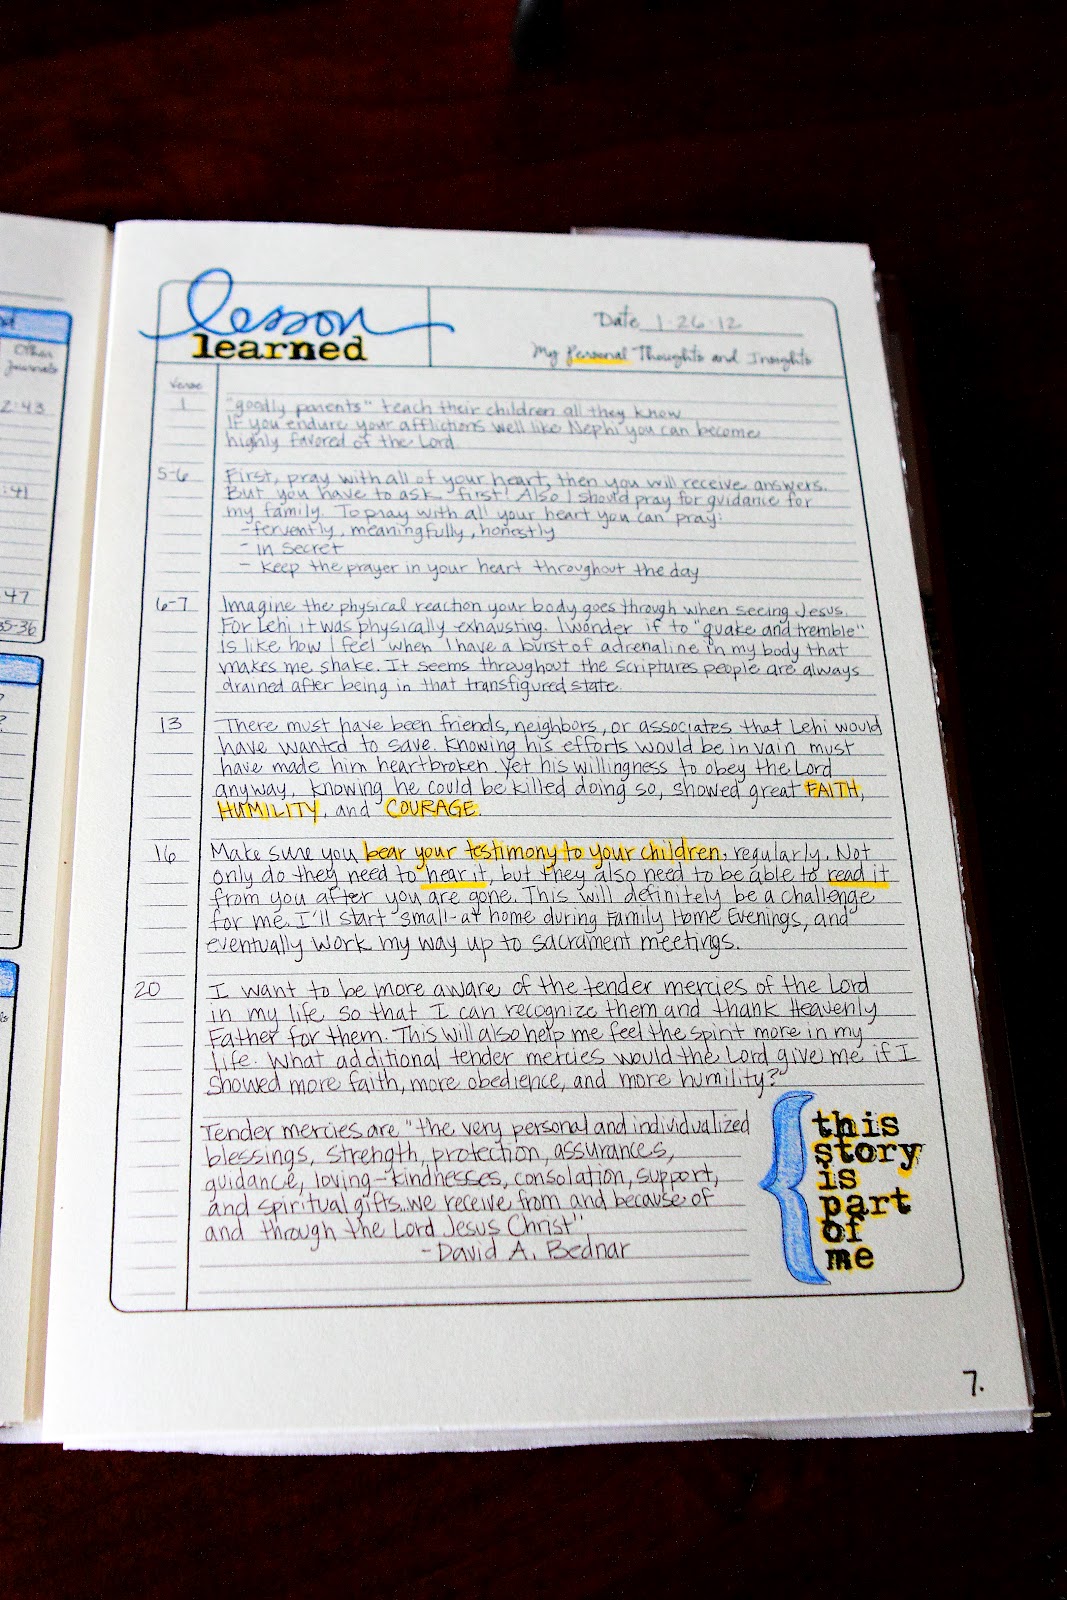 Other
Journals
2:43
:41
47
35-36
lesson
learned
Date 1-26-12
My Personal Thoughts and Insights
Verse
1
"goodly parents" teach their children all they know
If you endure your afflictions well like Nephi you can become
highly favored of the Lord
5-6
First, pray with all of your heart, then you will receive answers.
But you have to ask first! Also I should pray for guidance for
my family. To pray with all your heart you can pray:
- fervently, meaningfully, honestly
- in secret
- keep the prayer in your heart throughout the day
6-7
Imagine the physical reaction your body goes through when seeing Jesus.
For Lehi it was physically exhausting. I wonder if to "quake and tremble"
is like how I feel when I have a burst of adrenaline in my body that
makes me shake. It seems throughout the scriptures people are always
drained after being in that transfigured state.
13
There must have been friends, neighbors, or associates that Lehi would
have wanted to save. Knowing his efforts would be in vain must
have made him heartbroken. Yet his willingness to obey the Lord
anyway, knowing he could be killed doing so, showed great FAITH,
HUMILITY, and COURAGE.
16
Make sure you bear your testimony to your children, regularly. Not
only do they need to hear it, but they also need to be able to read it
from you after you are gone. This will definitely be a challenge
for me. I'll start small-at home during Family Home Evenings, and
eventually work my way up to sacrament meetings.
20
I want to be more aware of the tender mercies of the Lord
in my life so that I can recognize them and thank Heavenly
Father for them. This will also help me feel the spirit more in my
life. What additional tender mercies would the Lord give me if I
showed more faith, more obedience, and more humility?
Tender mercies are "the very personal and individualized
blessings, strength, protection, assurances,
guidance, loving-kindnesses, consolation, support,
and spiritual gifts we receive from and because of
and through the Lord Jesus Christ"
-David A. Bednar
this
story
is
part
of
me
7.